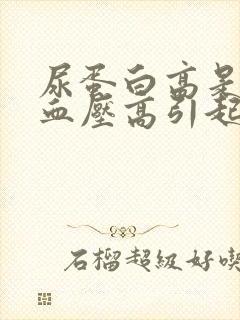 尿蛋白高是
血壓高引起
石榴超級好喫